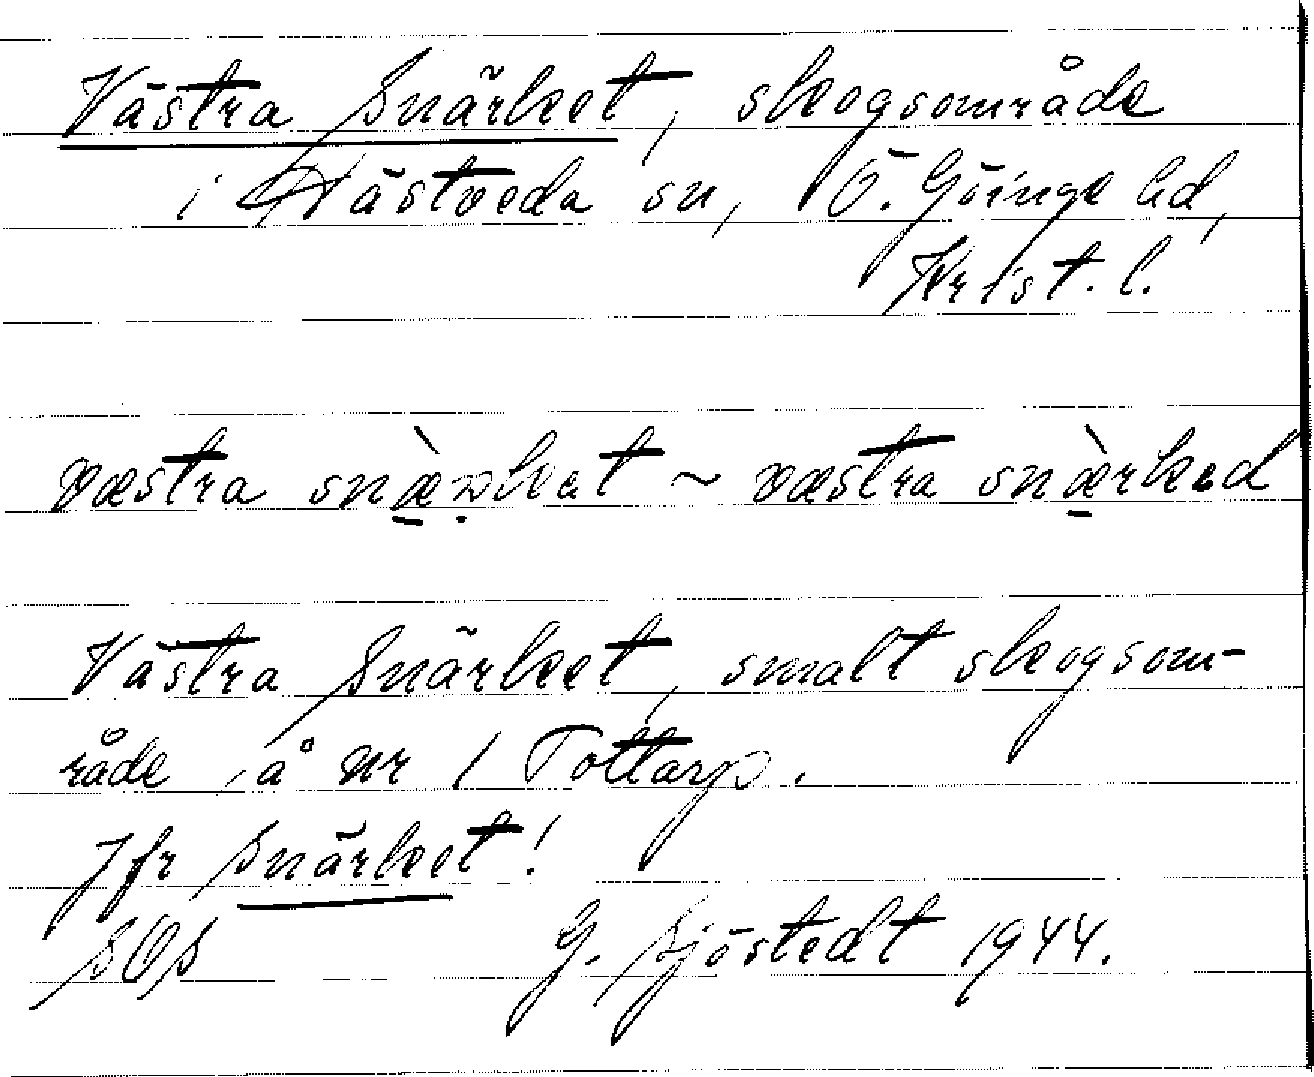 Västra Snärket, skogsområde
i Nästveda sn, Ö. Göinge hd,
Krist. l.
væstra snæ̀rket ~ væstra snæ̀rkəd
Västra Snärket, smalt skogsom-
råde å nr 1 Tottarp.
Jfr Snärket!
SOS G. Sjöstedt 1944.